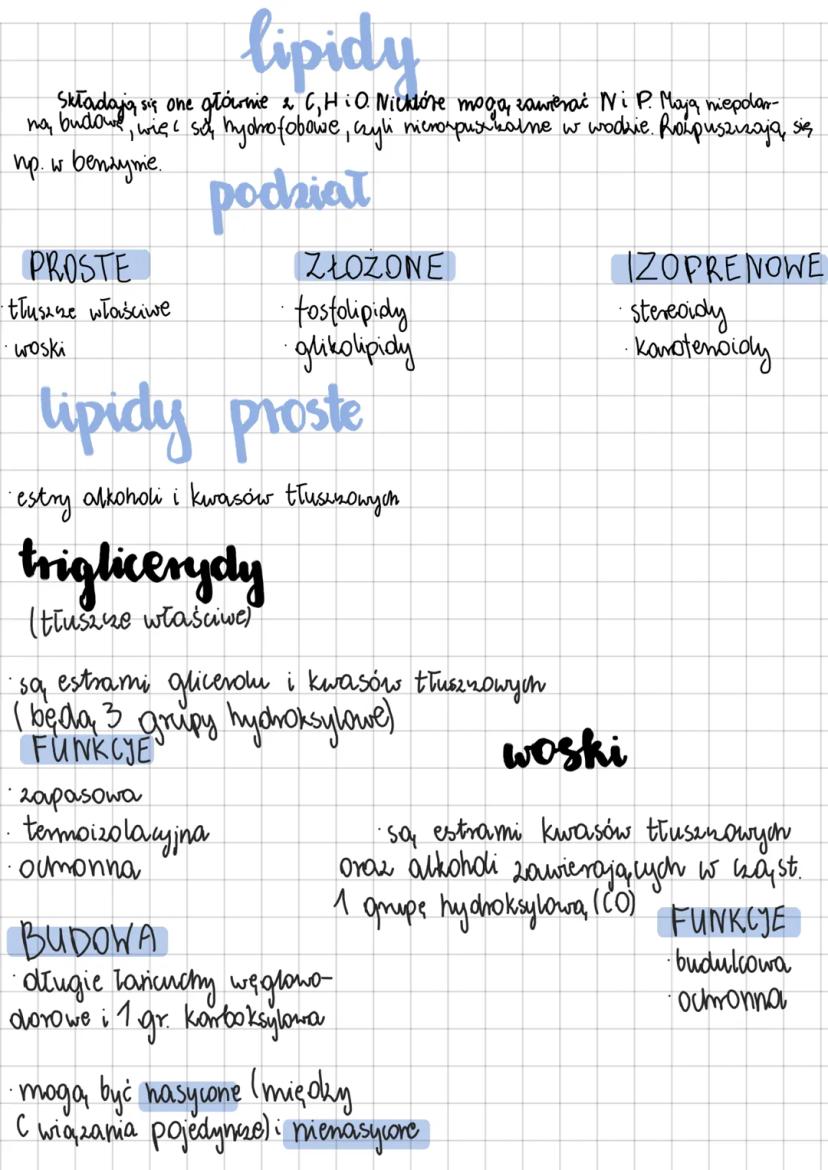 lipidy
Składają się one głównie z C, H i O. Niektóre mogą zawierać N i P. Mają niepolar-
ną budowę, więc są hydrofobowe, czyli nierozpuszkalne w wodzie. Rozpuszczają się
np. w benzynie.
podział
PROSTE
· tłuszcze właściwe
· woski
ZŁOŻONE
· fosfolipidy
· glikolipidy
IZOPRENOWE
· stereoidy
· karotenoidy
lipidy proste
· estry alkoholi i kwasów tłuszczowych
triglicerydy
(tłuszcze właściwe)
· są estrami glicerolu i kwasów tłuszczowych
(będą 3 grupy hydroksylowe)
FUNKCJE
· zapasowa
· termoizolacyjna
· ochronna
BUDOWA
· długie łańcuchy węglowo-
dorowe i 1 gr. karboksylowa
· mogą być nasycone (między
C wiązania pojedyncze) i nienasycone
woski
· są estrami kwasów tłuszczowych
oraz alkoholi zawierających w cząst.
1 grupę hydroksylową (CO)
FUNKCJE
· budulcowa
· ochronna